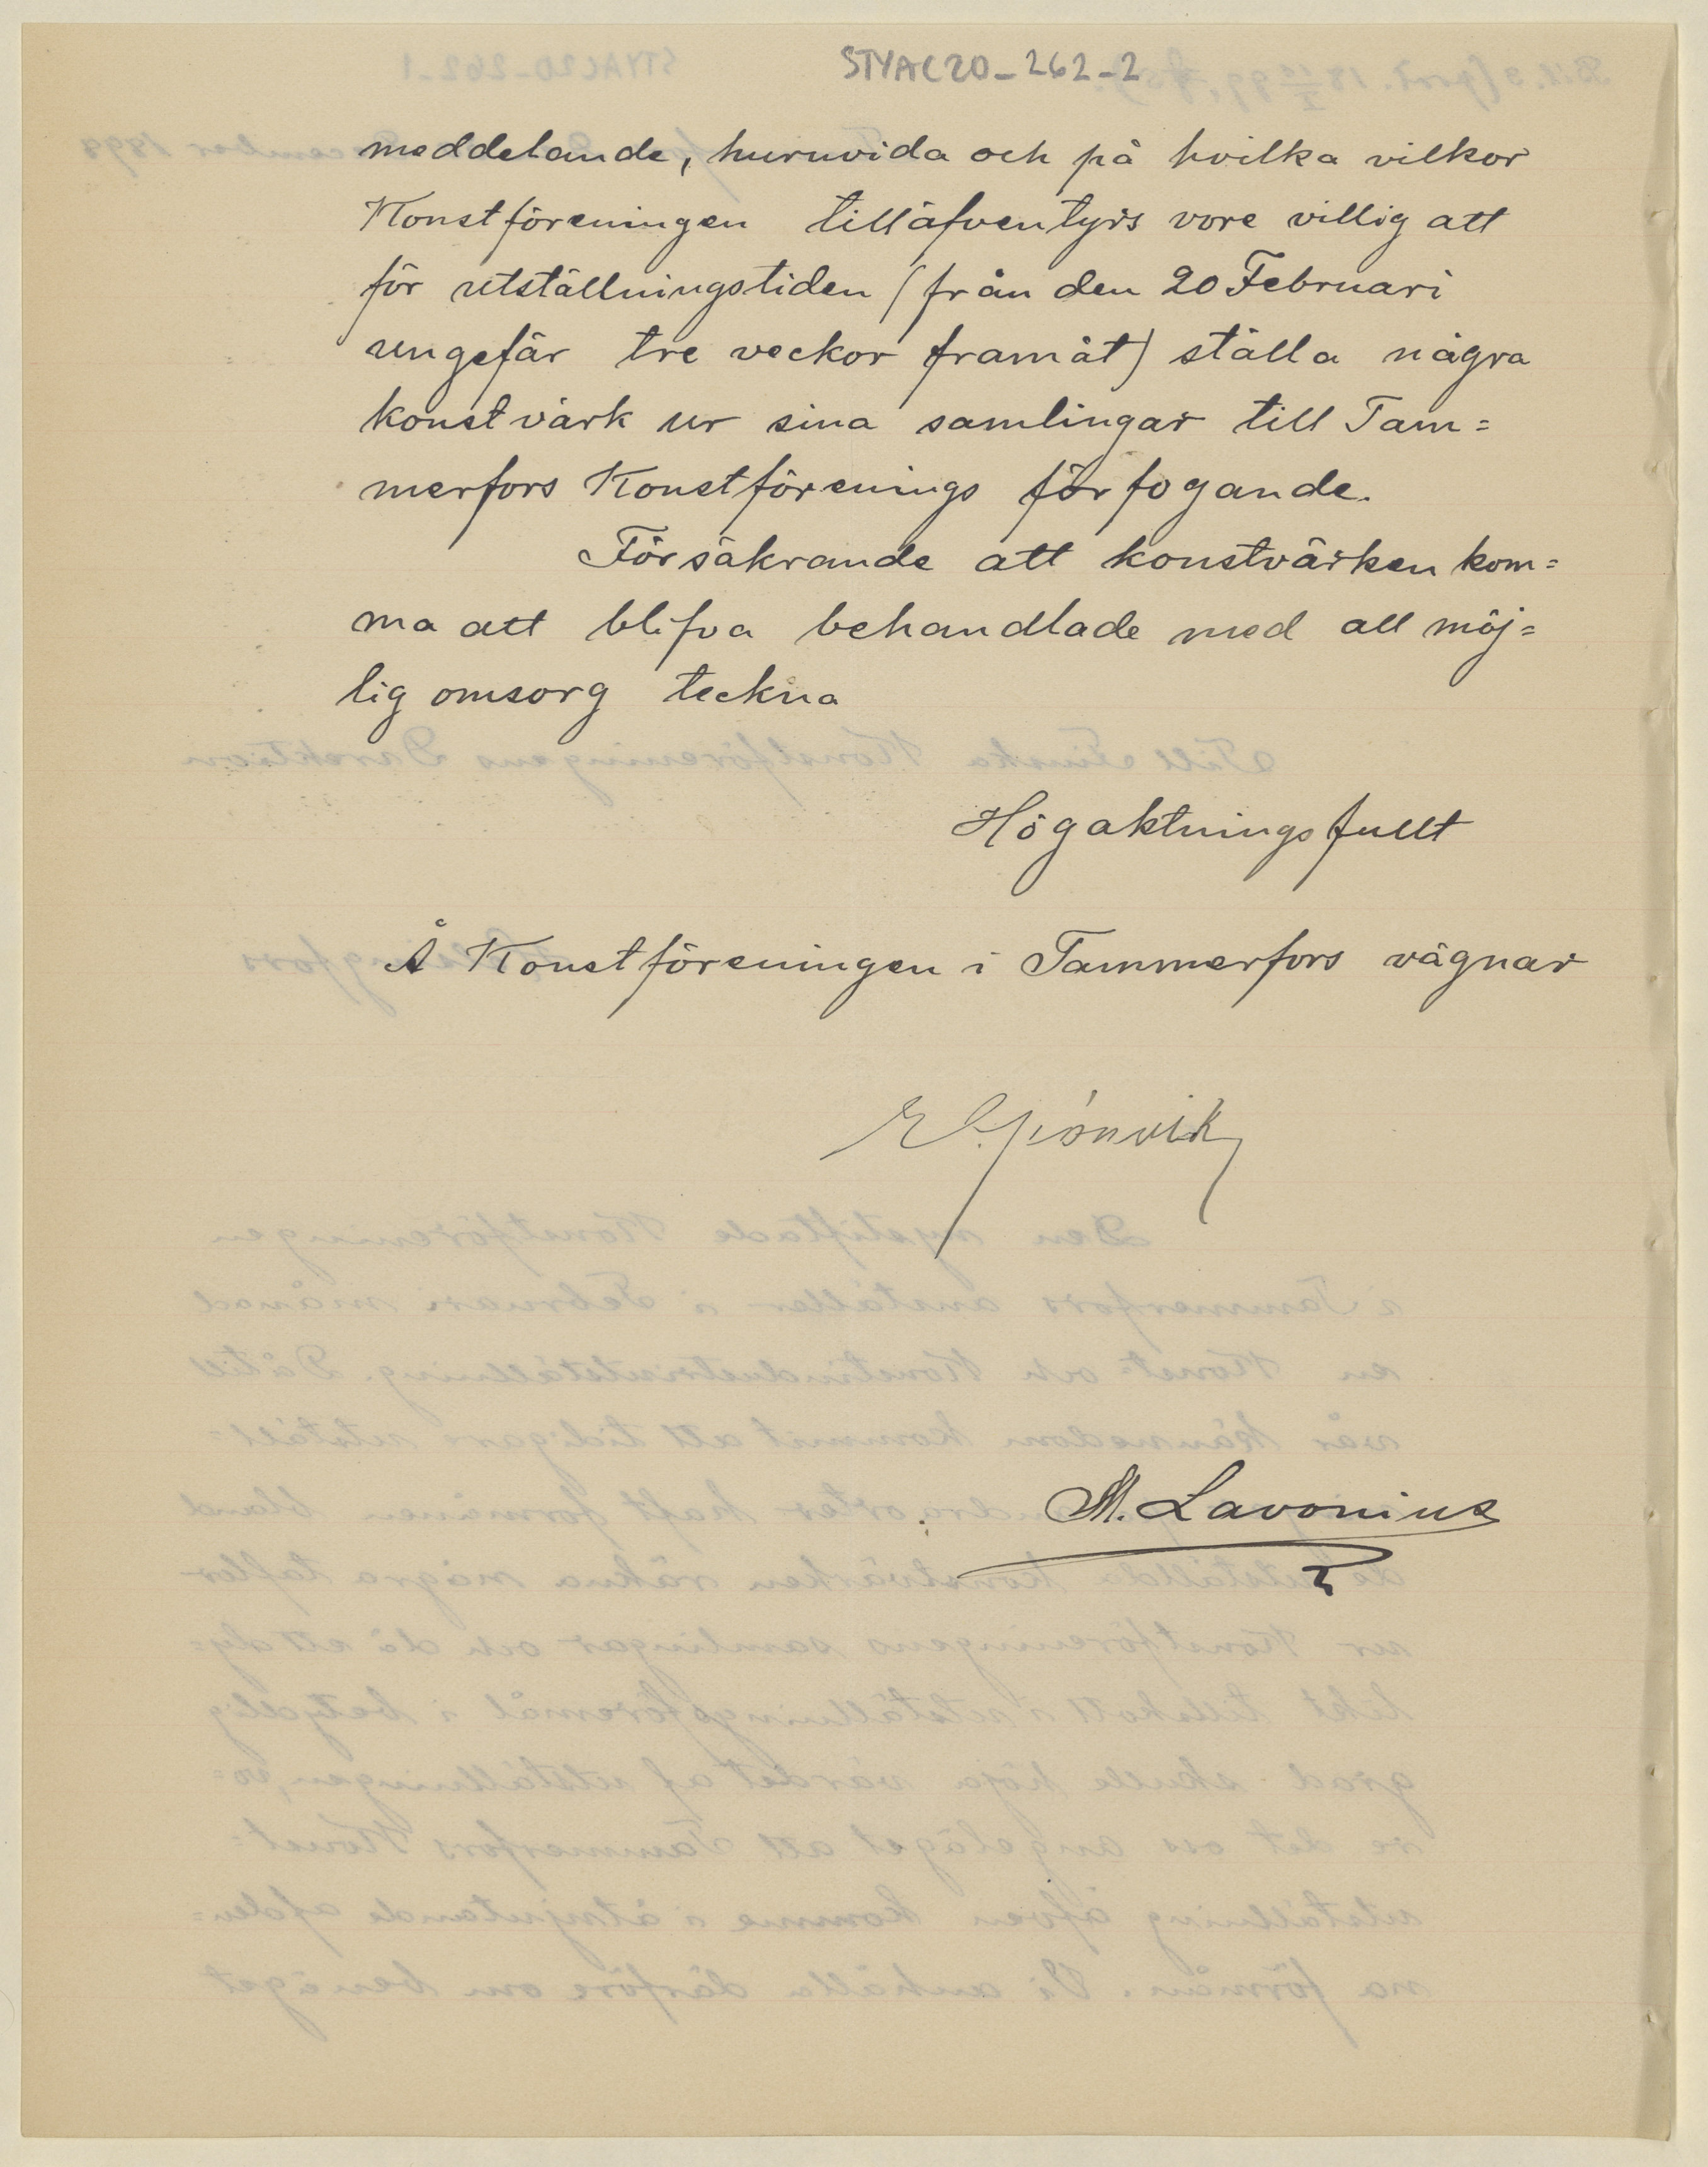 STYAC20_262_2
meddelande, huruvida och på hvilka vilkor
Konstföreningen tilläfventyrs vore villig att
för utställningstiden (från den 20 Februari
ungefär tre veckor framåt) ställa några
konstvärk ur sina samlingar till Tam=
merfors Konstförenings förfogande.
Försäkrande att konstvärken kom=
ma att blifva behandlade med all möj=
lig omsorg teckna
Högaktningsfullt
Å Konstföreningen i Tammerfors vägnar
M. Lavonius